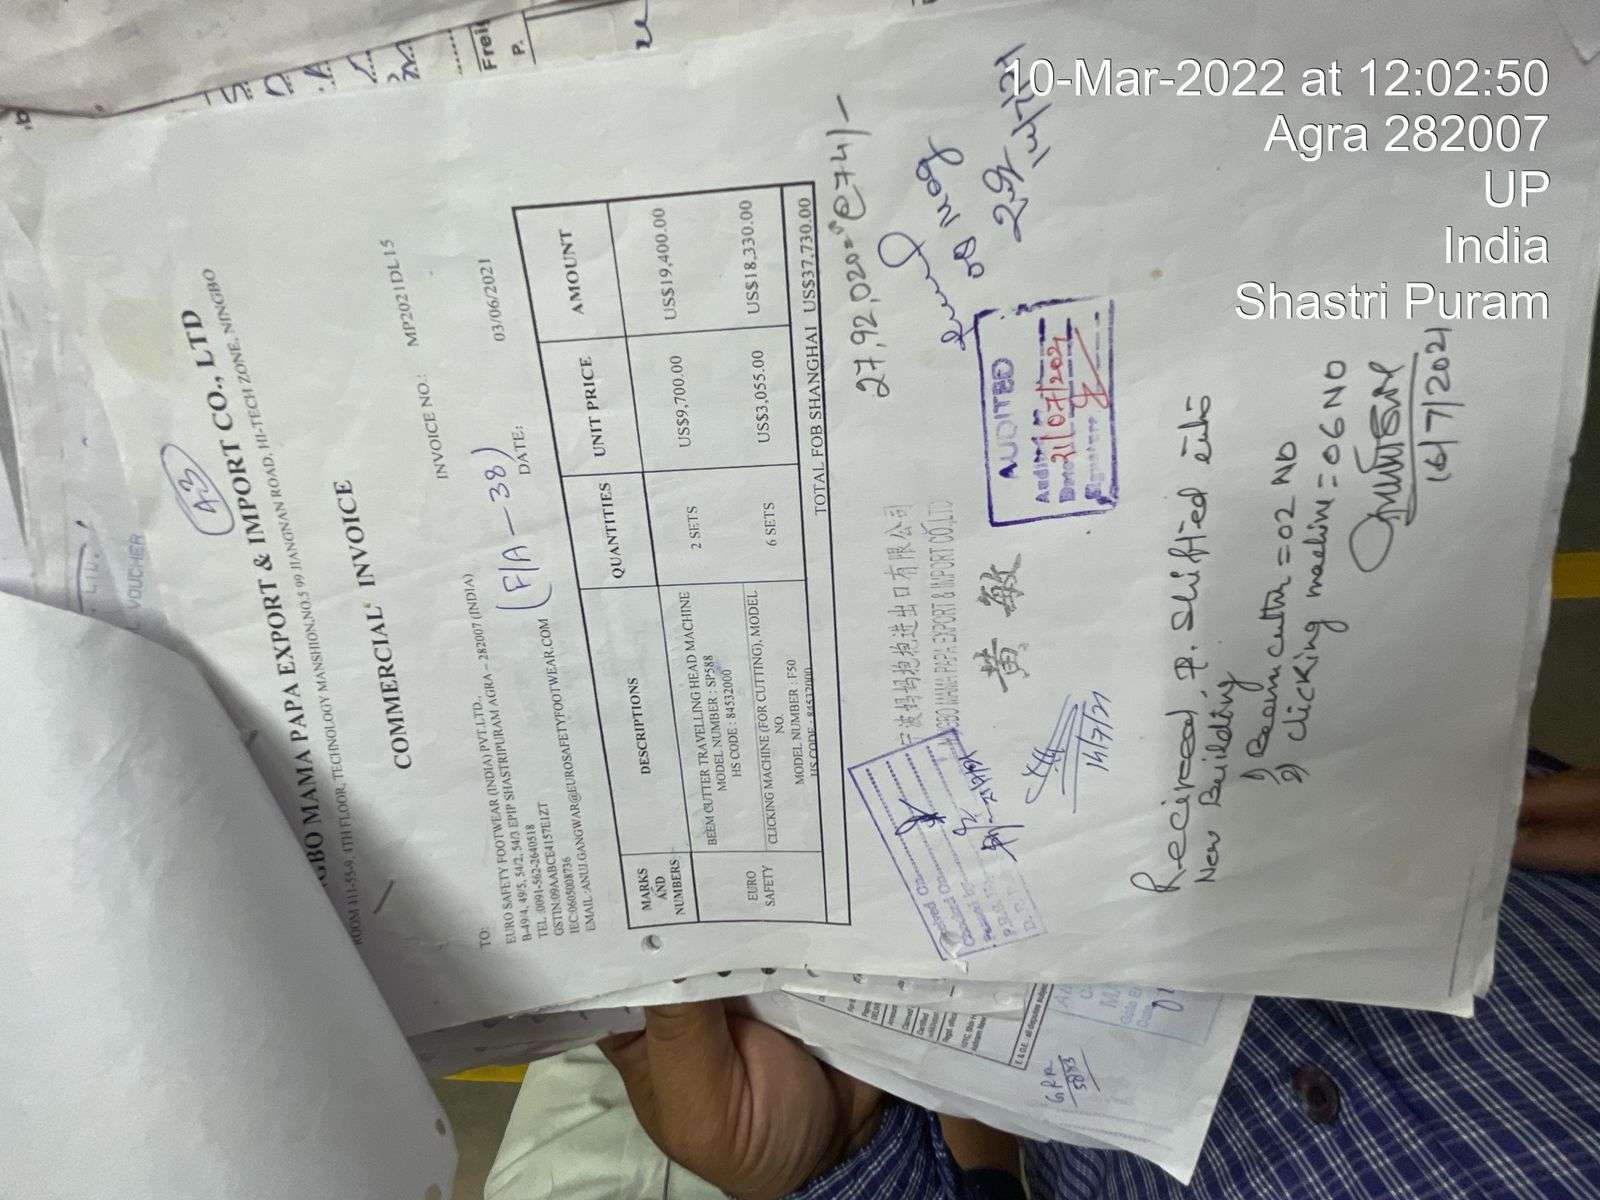 10-Mar-2022 at 12:02:50
Agra 282007
UP
India
Shastri Puram
VOUCHER
Frei
P.
43
GBO MAMA PAPA EXPORT & IMPORT CO., LTD
ROOM 411-55-9, 4TH FLOOR, TECHNOLOGY MANSHION,NO.5 99 JIANGNAN ROAD, HI-TECH ZONE, NINGBO
COMMERCIAL INVOICE
INVOICE NO.: MP2021DL15
TO:
EURO SAFETY FOOTWEAR (INDIA) PVT.LTD.,
B-49/4, 49/5, 54/2, 54/3 EPIP SHASTRIPURAM AGRA – 282007 (INDIA)
TEL :0091-562-2640518
GSTIN:09AABCE4157E1ZT
IEC:0605008736
EMAIL :ANUJ.GANGWAR@EUROSAFETYFOOTWEAR.COM
(F/A-38)
DATE: 03/06/2021
MARKS AND NUMBERS DESCRIPTIONS QUANTITIES UNIT PRICE AMOUNT
BEEM CUTTER TRAVELLING HEAD MACHINE 2 SETS US$9,700.00 US$19,400.00
MODEL NUMBER : SP588
HS CODE : 84532000
EURO SAFETY CLICKING MACHINE (FOR CUTTING), MODEL 6 SETS US$3,055.00 US$18,330.00
NO.
MODEL NUMBER : F50
HS CODE : 84532000
TOTAL FOB SHANGHAI US$37,730.00
27,92,020=00 @74/-
波妈妈爸爸进出口有限公司
GBO MAMA PAPA EXPORT & IMPORT CO.,LTD
黄敏
AUDITED
Date 21/07/2021
14/7/21
Received, P. Shifted into
New Building
1) Beam cutter = 02 NO
2) Clicking machine = 06 NO
16/7/2021
GRR
E. & O.E.